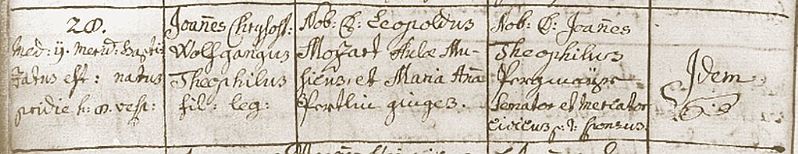 28.
med: ij: merid: bapti=
zatus est: natus
pridie h: 8. vesp:
Joan̄es Chrysost:
Wolfgangus
Theophilus
fil: leg:
Nob: D: Leopoldus
Mozart Aulæ Mu=
sicus, et Maria An̄a
Pertlin giuges.
Nob: D: Joan̄es
Theophilus
Pergmayr
Senator et Mercator
civicus p: t: sponsus
Idem